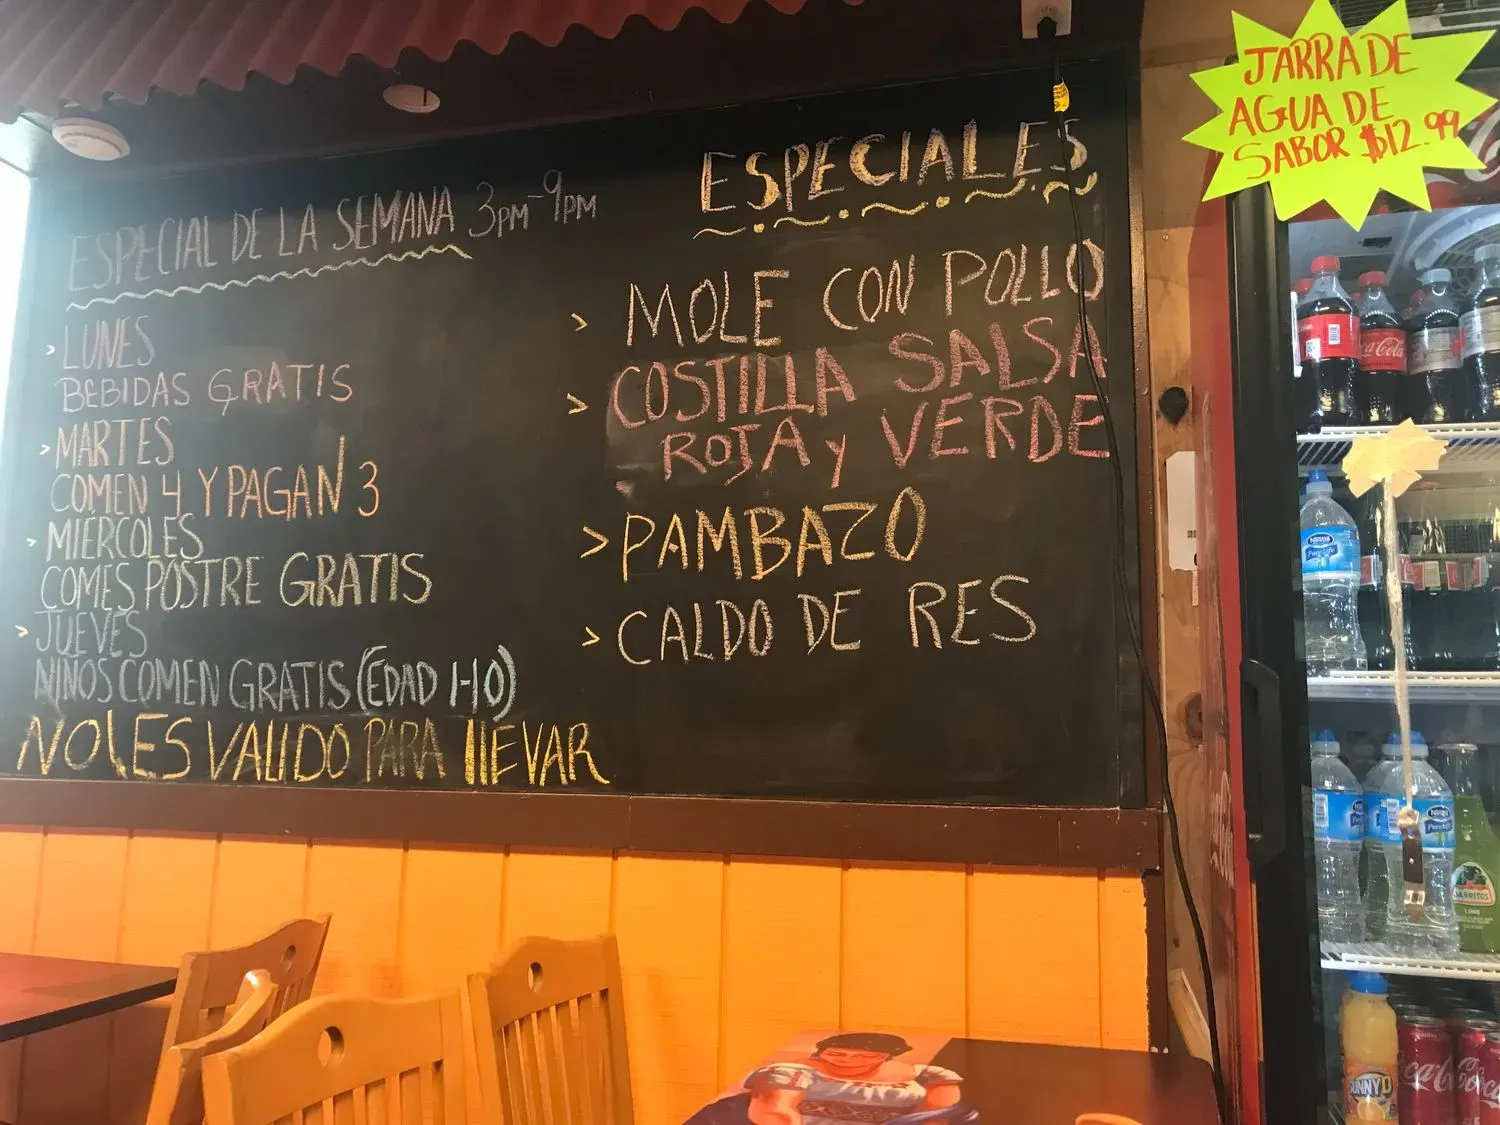 ESPECIAL DE LA SEMANA 3PM-9PM
> LUNES
BEBIDAS GRATIS
> MARTES
COMEN 4 Y PAGAN 3
> MIÉRCOLES
COMES POSTRE GRATIS
> JUEVES
NIÑOS COMEN GRATIS (EDAD 1-10)
NO ES VALIDO PARA llEVAR
ESPECIALES
> MOLE CON POLLO
> COSTILLA SALSA
ROJA y VERDE
> PAMBAZO
> CALDO DE RES
JARRA DE
AGUA DE
SABOR $12.99
Coca-Cola
Nestle
Pure Life
Nestle
Pure Life
JARRITOS
LIME
SUNNYD
Coca-Cola